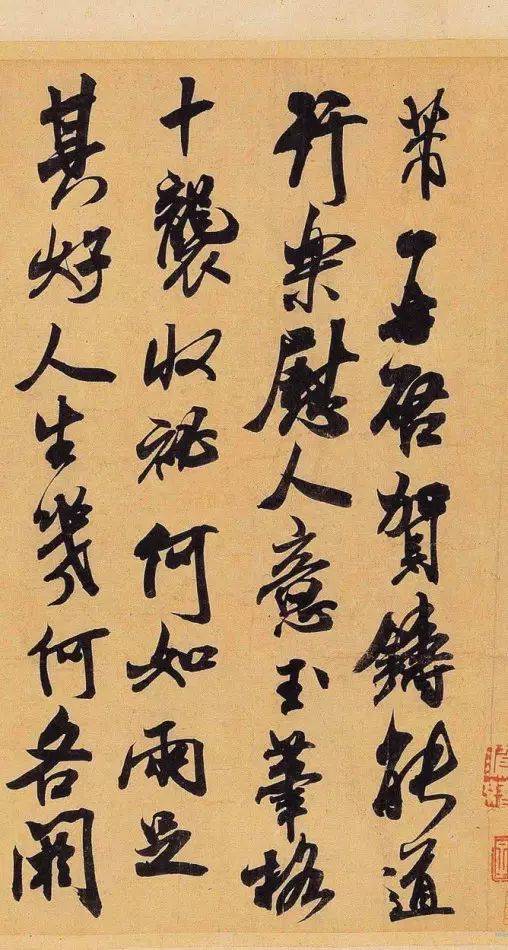 芾再啓賀鑄能道
行樂慰人意玉筆格
十襲收祕何如兩足
其好人生幾何各閼